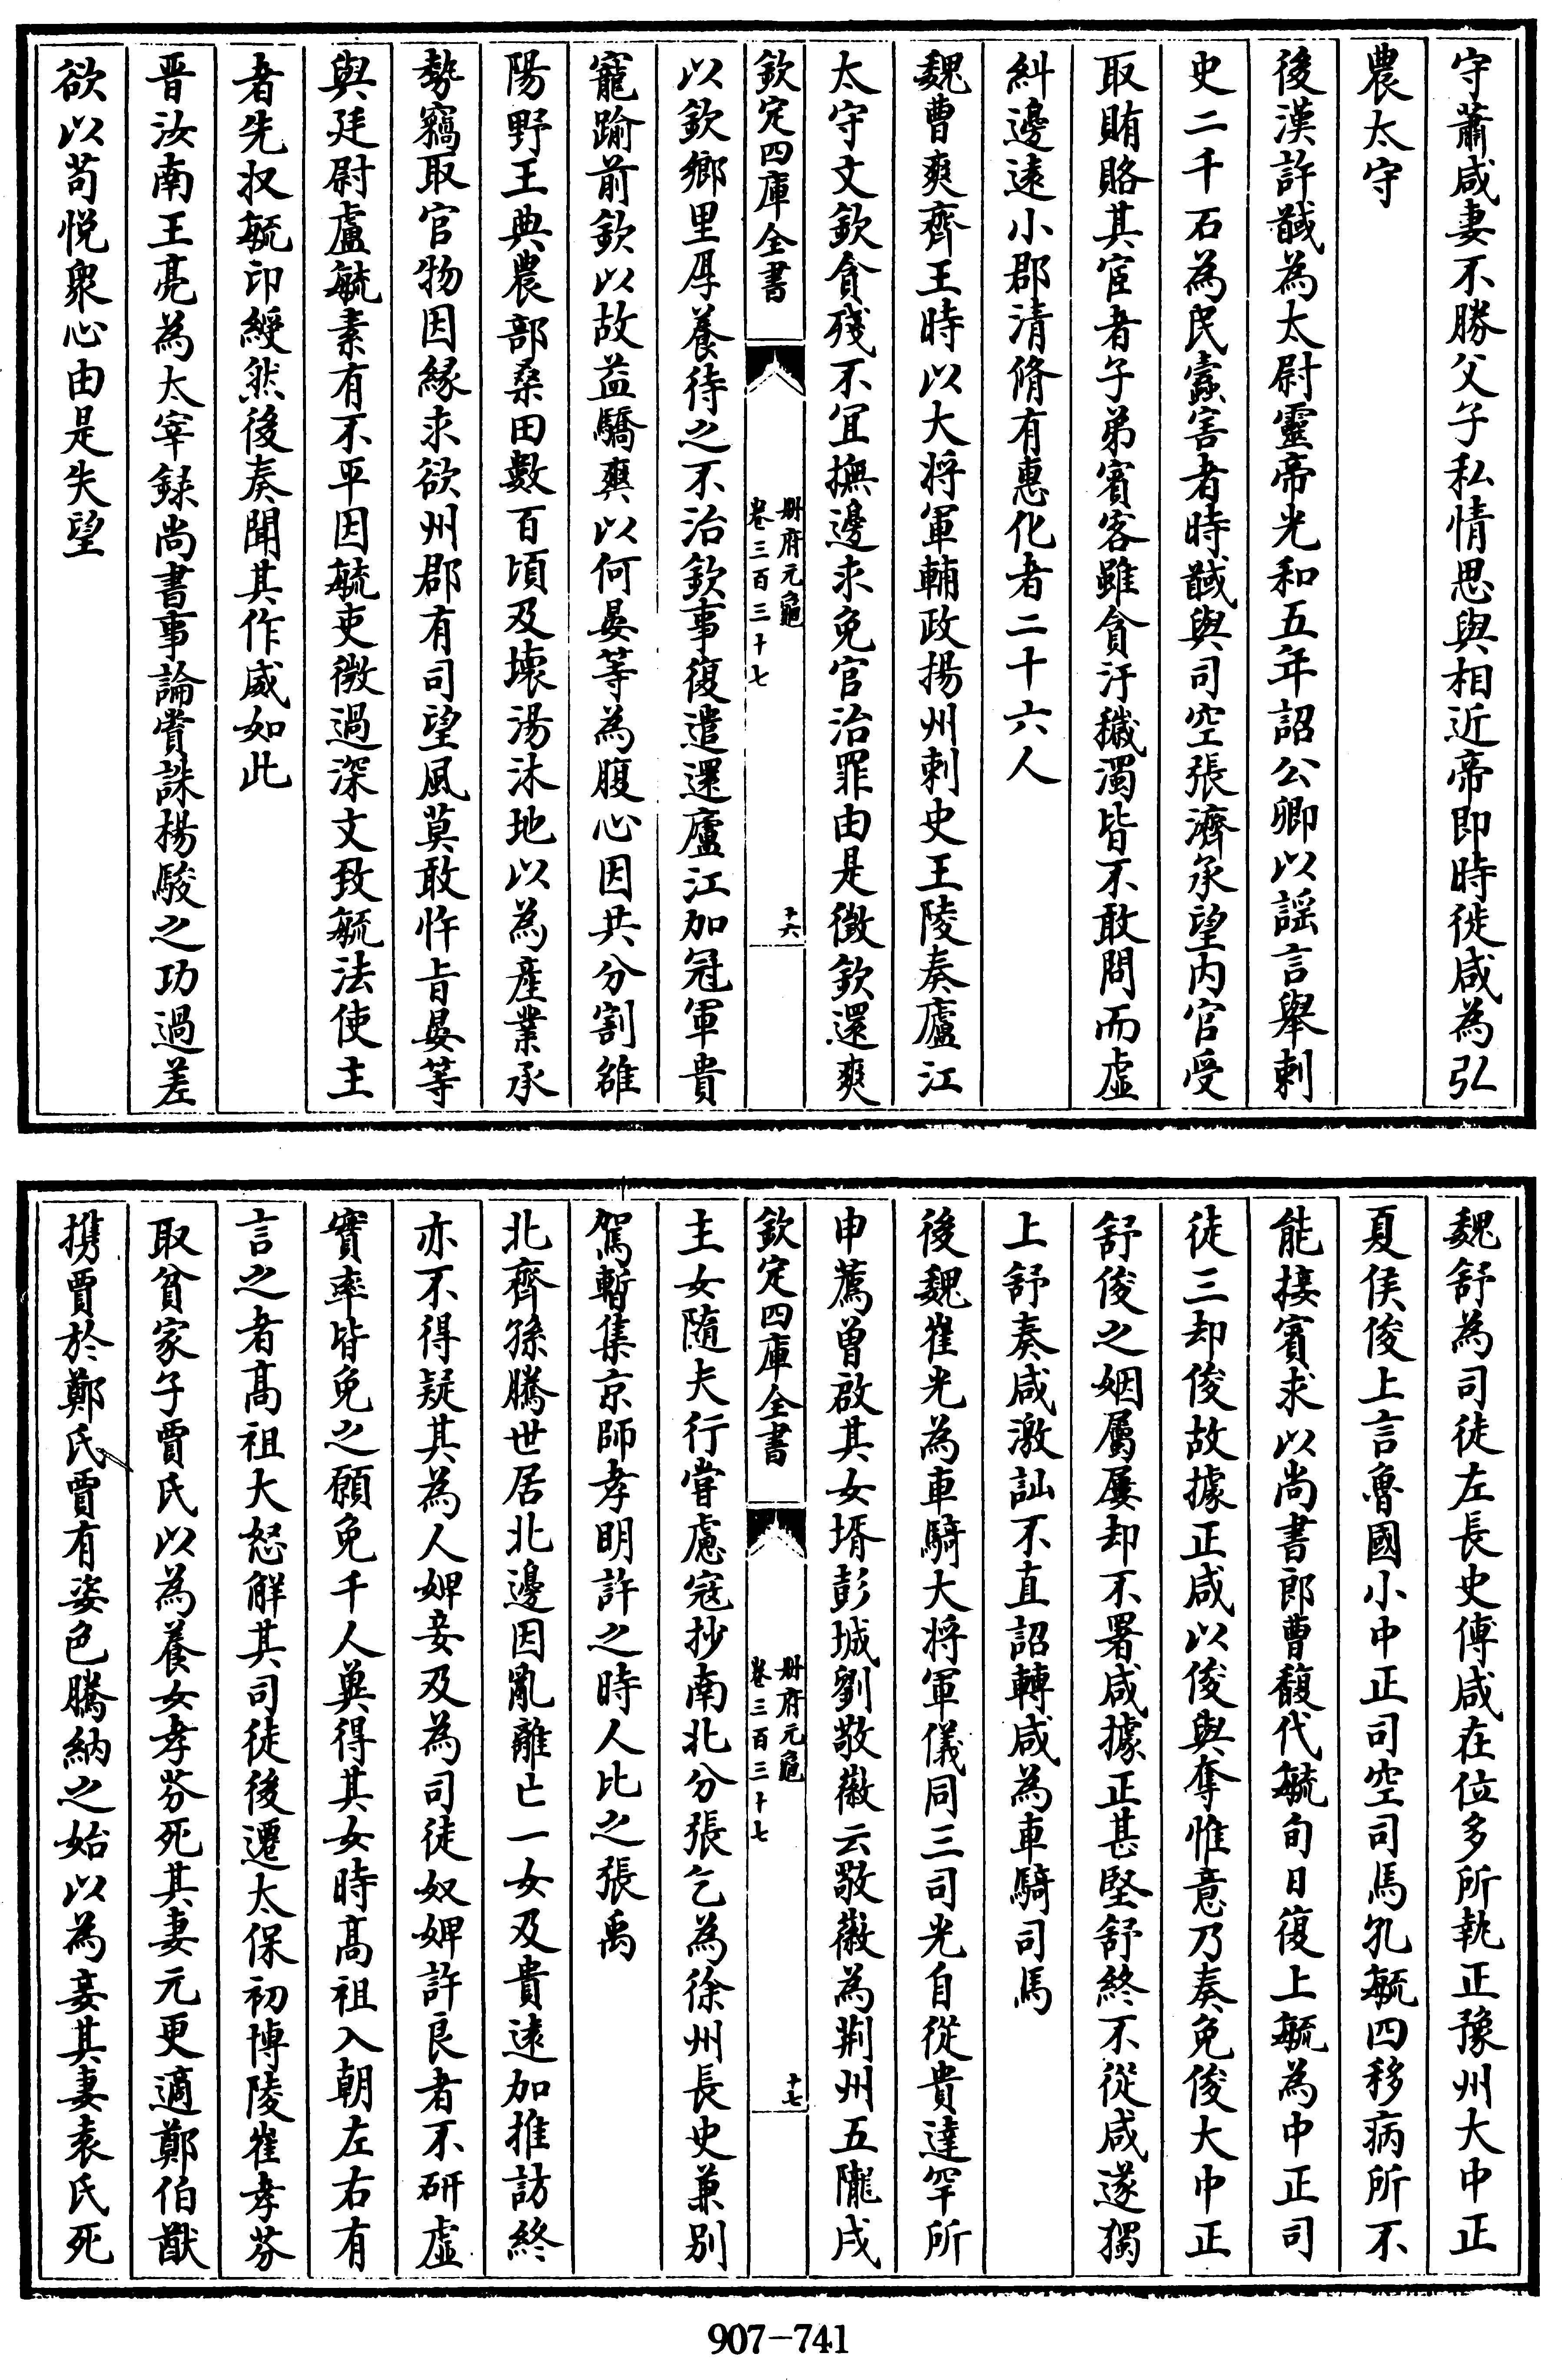 守蕭咸妻不勝父子私情思與相近帝即時徙咸為弘
農太守
後漢許馘為太尉靈帝光和五年詔公卿以謡言舉刺
史二千石為民蠧害者時馘與司空張濟承望内官受
取賄賂其宦者子弟賓客雖貪汙穢濁皆不敢問而虚
糾邊逺小郡清脩有惠化者二十六人
魏曹爽齊王時以大將軍輔政揚州刺史王陵奏廬江
太守文欽貪殘不宜撫邊求免官治罪由是徴欽還爽
欽定四庫全書
冊府元龜
卷三百三十七
十六
以欽鄉里厚養待之不治欽事復遣還廬江加冠軍貴
寵踰前欽以故益驕爽以何晏等為腹心因共分割雒
陽野王典農部桑田數百頃及壊湯沐地以為產業承
勢竊取官物因緣求欲州郡有司望風莫敢忤旨晏等
與廷尉盧毓素有不平因毓吏微過深文致毓法使主
者先収毓印綬然後奏聞其作威如此
晋汝南王亮為太宰録尚書事論賞誅楊駿之功過差
欲以苟悦衆心由是失望
魏舒為司徒左長史傅咸在位多所執正豫州大中正
夏侯俊上言魯國小中正司空司馬孔毓四移病所不
能接賓求以尚書郎曹馥代毓旬日復上毓為中正司
徒三却俊故據正咸以俊與奪惟意乃奏免俊大中正
舒俊之姻屬屢却不署咸據正甚堅舒終不從咸遂獨
上舒奏咸激訕不直詔轉咸為車騎司馬
後魏崔光為車騎大將軍儀同三司光自從貴達罕所
申薦曾啟其女壻彭城劉敬徽云敬徽為荆州五隴戍
欽定四庫全書
冊府元龜
卷三百三十七
十七
主女隨夫行當慮寇抄南北分張乞為徐州長史兼别
駕暫集京師孝明許之時人比之張禹
北齊孫騰世居北邊因亂離亡一女及貴逺加推訪終
亦不得疑其為人婢妾及為司徒奴婢許良者不研虚
實率皆免之願免千人兾得其女時髙祖入朝左右有
言之者髙祖大怒解其司徒後遷太保初博陵崔孝芬
取貧家子賈氏以為養女孝芬死其妻元更適鄭伯猷
携賈於鄭氏賈有姿色騰納之始以為妾其妻袁氏死
907-741